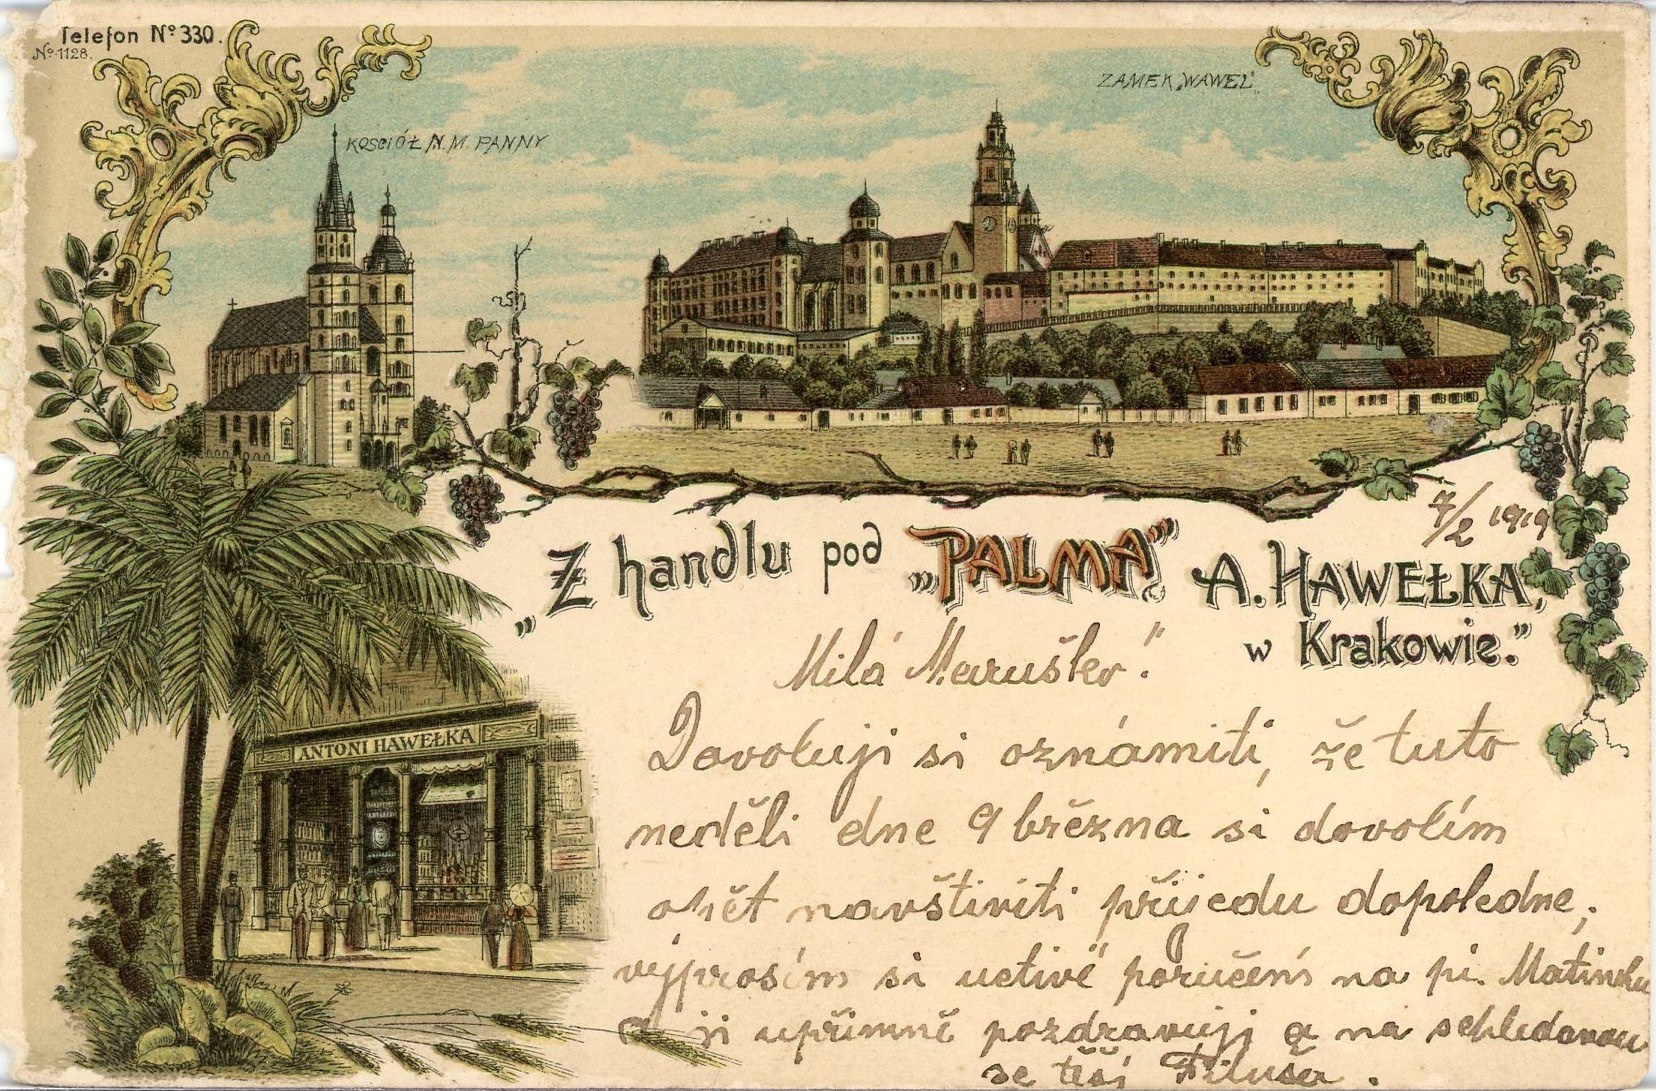 Telefon Nº 330.
Nº 1128.
KOŚCIÓŁ N. M. PANNY
ZAMEK „WAWEL”
7/2 1919
„Z handlu pod „PALMĄ” A. HAWEŁKA,
w Krakowie.”
ANTONI HAWEŁKA
Milá Maruško!
Dovoluji si oznámiti, že tuto
neděli dne 9 března si dovolím
opět navštíviti přijedu dopoledne,
výprosím si uctivé poručení na pí. Matinku
ji upřimně pozdravuji a na schledanou
se těší